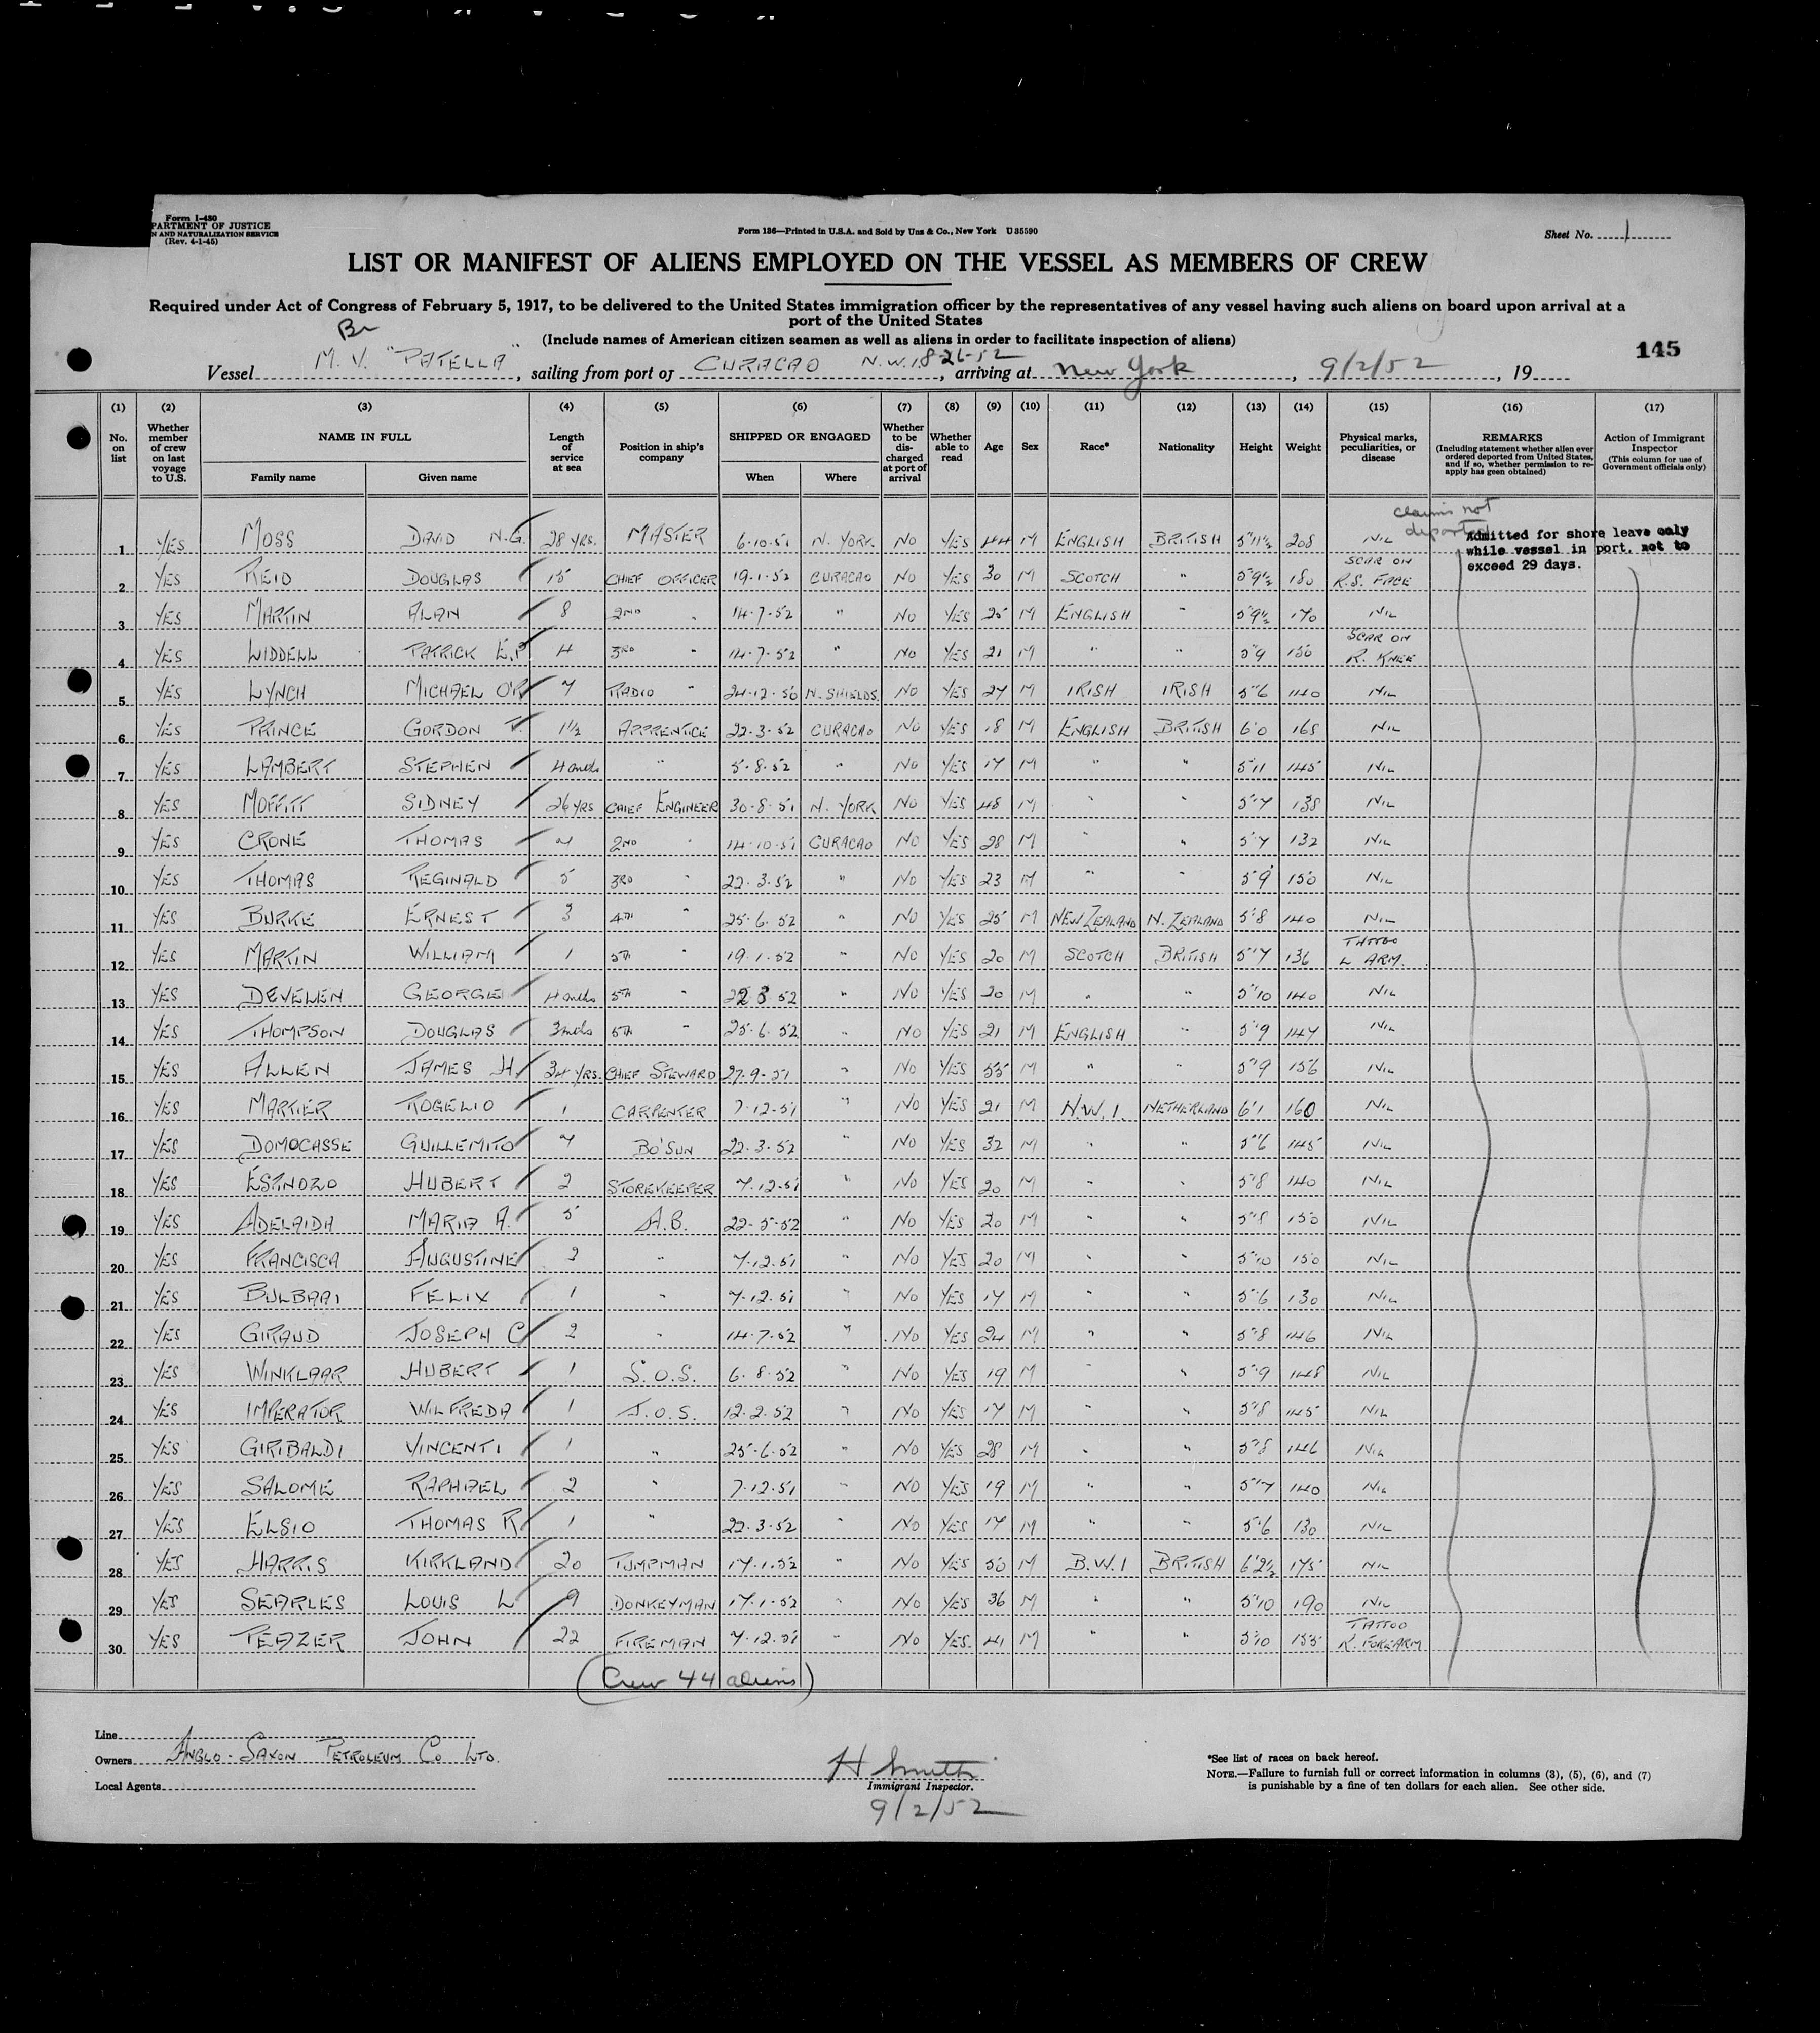 Form I-480
PARTMENT OF JUSTICE
N AND NATURALIZATION SERVICE
(Rev. 4-1-45)
Form 136—Printed in U.S.A. and Sold by Unz & Co., New York U 35590
Sheet No. 1
LIST OR MANIFEST OF ALIENS EMPLOYED ON THE VESSEL AS MEMBERS OF CREW
Required under Act of Congress of February 5, 1917, to be delivered to the United States immigration officer by the representatives of any vessel having such aliens on board upon arrival at a
port of the United States
(Include names of American citizen seamen as well as aliens in order to facilitate inspection of aliens)
Br
145
Vessel M.V. "PATELLA", sailing from port of CURACAO N.W.I. 8-26-52, arriving at New York, 9/2/52, 19
(1) (2) (3) (4) (5) (6) (7) (8) (9) (10) (11) (12) (13) (14) (15) (16) (17)
No. on list Whether member of crew on last voyage to U.S. NAME IN FULL Family name Given name Length of service at sea Position in ship's company SHIPPED OR ENGAGED When Where Whether to be discharged at port of arrival Whether able to read Age Sex Race* Nationality Height Weight Physical marks, peculiarities, or disease REMARKS (Including statement whether alien ever ordered deported from United States, and if so, whether permission to re-apply has geen obtained) Action of Immigrant Inspector (This column for use of Government officials only)
claims not
deported
Admitted for shore leave only
while vessel in port, not to
exceed 29 days.
1 YES MOSS DAVID N.G. 28 YRS. MASTER 6.10.51 N. YORK. NO YES 44 M ENGLISH BRITISH 5'11½ 208 NIL
2 YES REID DOUGLAS 15 CHIEF OFFICER 19.1.52 CURACAO NO YES 30 M SCOTCH " 5'9½ 180 SCAR ON R.S. FACE
3 YES MARTIN ALAN 8 2ND " 14.7.52 " NO YES 25 M ENGLISH " 5'9½ 170 NIL
4 YES LIDDELL PATRICK E.P. 4 3RD " 14.7.52 " NO YES 21 M " " 5'9 150 SCAR ON R. KNEE
5 YES LYNCH MICHAEL O'R 7 RADIO " 24.12.50 N. SHIELDS. NO YES 27 M IRISH IRISH 5'6 140 NIL
6 YES PRINCE GORDON 1½ APPRENTICE 22.3.52 CURACAO NO YES 18 M ENGLISH BRITISH 6'0 165 NIL
7 YES LAMBERT STEPHEN 4 mths " 5.8.52 " NO YES 17 M " " 5'11 145 NIL
8 YES MOFFITT SIDNEY 26 YRS CHIEF ENGINEER 30.8.51 N. YORK NO YES 48 M " " 5'7 138 NIL
9 YES CRONE THOMAS 2ND " 14.10.51 CURACAO NO YES 28 M " " 5'7 132 NIL
10 YES THOMAS REGINALD 5 3RD " 22.3.52 " NO YES 23 M " " 5'9 150 NIL
11 YES BURKE ERNEST 3 4TH " 25.6.52 " NO YES 25 M NEW ZEALAND N. ZEALAND 5'8 140 NIL
12 YES MARTIN WILLIAM 1 5TH 19.1.52 " NO YES 20 M SCOTCH BRITISH 5'7 136 TATTOO L ARM.
13 YES DEVELEN GEORGE 4 mths 5TH " 52 " NO YES 20 M " " 5'10 140 NIL
14 YES THOMPSON DOUGLAS 3 mths 5TH " 25.6.52 " NO YES 21 M ENGLISH " 5'9 147 NIL
15 YES ALLEN JAMES H. 34 YRS. CHIEF STEWARD 27.9.51 " NO YES 55 M " " 5'9 156 NIL
16 YES MARTIER ROGELIO 1 CARPENTER 7.12.51 " NO YES 21 M N.W.I. NETHERLAND 6'1 160 NIL
17 YES DOMOCASSE GUILLEMITO 7 BO'SUN 22.3.52 " NO YES 32 M " " 5'6 145 NIL
18 YES ESPINOZO HUBERT 2 STOREKEEPER 7.12.51 " NO YES 20 M " " 5'8 140 NIL
19 YES ADELAIDA MARIA A. 5 A.B. 22-5-52 " NO YES 20 M " " 5'8 150 NIL
20 YES FRANCISCA AUGUSTINE 2 " 7.12.51 " NO YES 20 M " " 5'10 150 NIL
21 YES BULBAAI FELIX 1 " 7.12.51 " NO YES 17 M " " 5'6 130 NIL
22 YES GIRAUD JOSEPH C 2 " 14.7.52 " NO YES 24 M " " 5'8 146 NIL
23 YES WINKLAAR HUBERT 1 S.O.S. 6.8.52 " NO YES 19 M " " 5'9 148 NIL
24 YES IMPERATOR WILFREDA 1 J.O.S. 12.2.52 " NO YES 17 M " " 5'8 145 NIL
25 YES GIRIBALDI VINCENTI 1 " 25.6.52 " NO YES 28 M " " 5'8 146 NIL
26 YES SALOME RAPHAEL 2 " 7.12.51 " NO YES 19 M " " 5'7 140 NIL
27 YES ELSIO THOMAS R 1 " 22.3.52 " NO YES 17 M " " 5'6 130 NIL
28 YES HARRIS KIRKLAND 20 PUMPMAN 17.1.52 " NO YES 50 M B.W.I BRITISH 6'2½ 175 NIL
29 YES SEARLES LOUIS L 9 DONKEYMAN 17.1.52 " NO YES 36 M " " 5'10 190 NIL
30 YES PEAZER JOHN 22 FIREMAN 7.12.51 " NO YES. 41 M " " 5'10 155 TATTOO R. FOREARM
(Crew 44 aliens)
Line
Owners ANGLO-SAXON PETROLEUM CO LTD.
Local Agents
H Smith
Immigrant Inspector.
9/2/52
*See list of races on back hereof.
NOTE.—Failure to furnish full or correct information in columns (3), (5), (6), and (7)
is punishable by a fine of ten dollars for each alien. See other side.